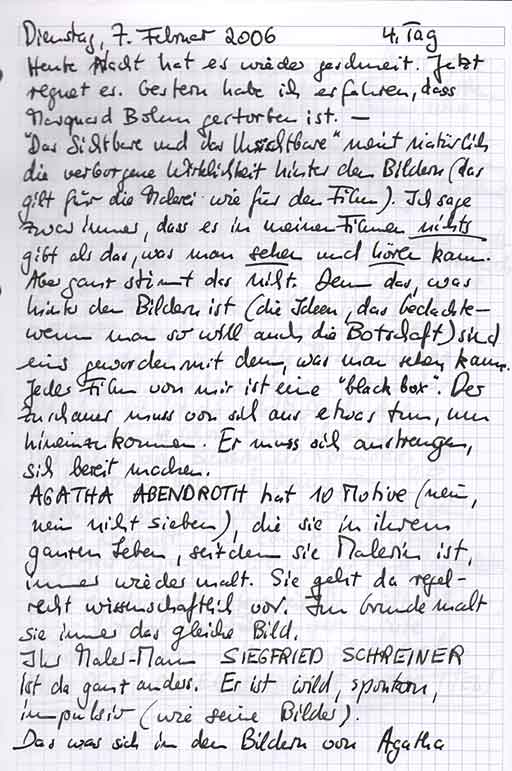 Dienstag, 7. Februar 2006 4. Tag
Heute Nacht hat es wieder geschneit. Jetzt
regnet es. Gestern habe ich erfahren, dass
Marquard Bohm gestorben ist. —
"Das Sichtbare und das Unsichtbare" meint natürlich
die verborgene Wirklichkeit hinter den Bildern (das
gilt für die Malerei wie für den Film). Ich sage
zwar immer, dass es in meinen Filmen nichts
gibt als das, was man sehen und hören kann.
Aber ganz stimmt das nicht. Denn das, was
hinter den Bildern ist (die Ideen, das Gedachte –
wenn man so will auch die Botschaft) sind
eins geworden mit dem, was man sehen kann.
Jeder Film von mir ist eine "black box". Der
Zuschauer muss von sich aus etwas tun, um
hineinzukommen. Er muss sich anstrengen,
sich bereit machen.
AGATHA ABENDROTH hat 10 Motive (nein,
nein nicht sieben), die sie in ihrem
ganzen Leben, seitdem sie Malerin ist,
immer wieder malt. Sie geht da regel-
recht wissenschaftlich vor. Im Grunde malt
sie immer das gleiche Bild.
Ihr Maler-Mann SIEGFRIED SCHREINER
ist da ganz anders. Er ist wild, spontan,
impulsiv (wie seine Bilder).
Das was sich in den Bildern von Agatha